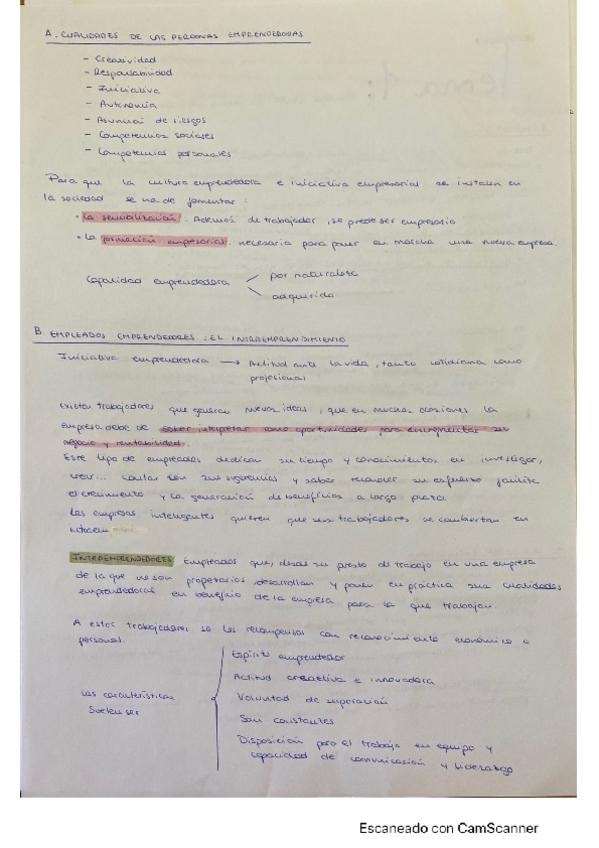 A. CUALIDADES DE LAS PERSONAS EMPRENDEDORAS
- Creatividad
- Responsabilidad
- Iniciativa
- Autonomía
- Asunción de riesgos
- Competencias sociales
- Competencias personales
Para que la cultura emprendedora e iniciativa empresarial se instalen en
la sociedad se ha de fomentar:
• La sensibilización. Además de trabajador, se puede ser empresario
• La formación empresarial. necesaria para poner en marcha una nueva empresa.
Capacidad emprendedora
por naturaleza
adquirida
B. EMPLEADOS EMPRENDEDORES: EL INTRAEMPRENDIMIENTO
Iniciativa emprendedora → Actitud ante la vida, tanto cotidiana como
profesional
Existen trabajadores que generan nuevas ideas, que en muchas ocasiones la
empresa debe de saber interpretar como oportunidades para incrementar su
negocio y rentabilidad.
Este tipo de empleados dedican su tiempo y conocimientos en investigar,
crear... contar con sus sugerencias y saber reconocer su esfuerzo facilita
el crecimiento y la generación de beneficios a largo plazo.
Las empresas inteligentes quieren que sus trabajadores se conviertan en
INTRAEMPRENDEDORES Empleados que, desde su puesto de trabajo en una empresa
de la que no son propietarios, desarrollan y ponen en práctica sus cualidades
emprendedoras en beneficio de la empresa para la que trabajan.
A estos trabajadores se les recompensa con reconocimiento económico o
personal.
Las características
suelen ser
Espíritu emprendedor
Actitud creativa e innovadora
Voluntad de superación
Son constantes
Disposición para el trabajo en equipo y
capacidad de comunicación y liderazgo
Escaneado con CamScanner